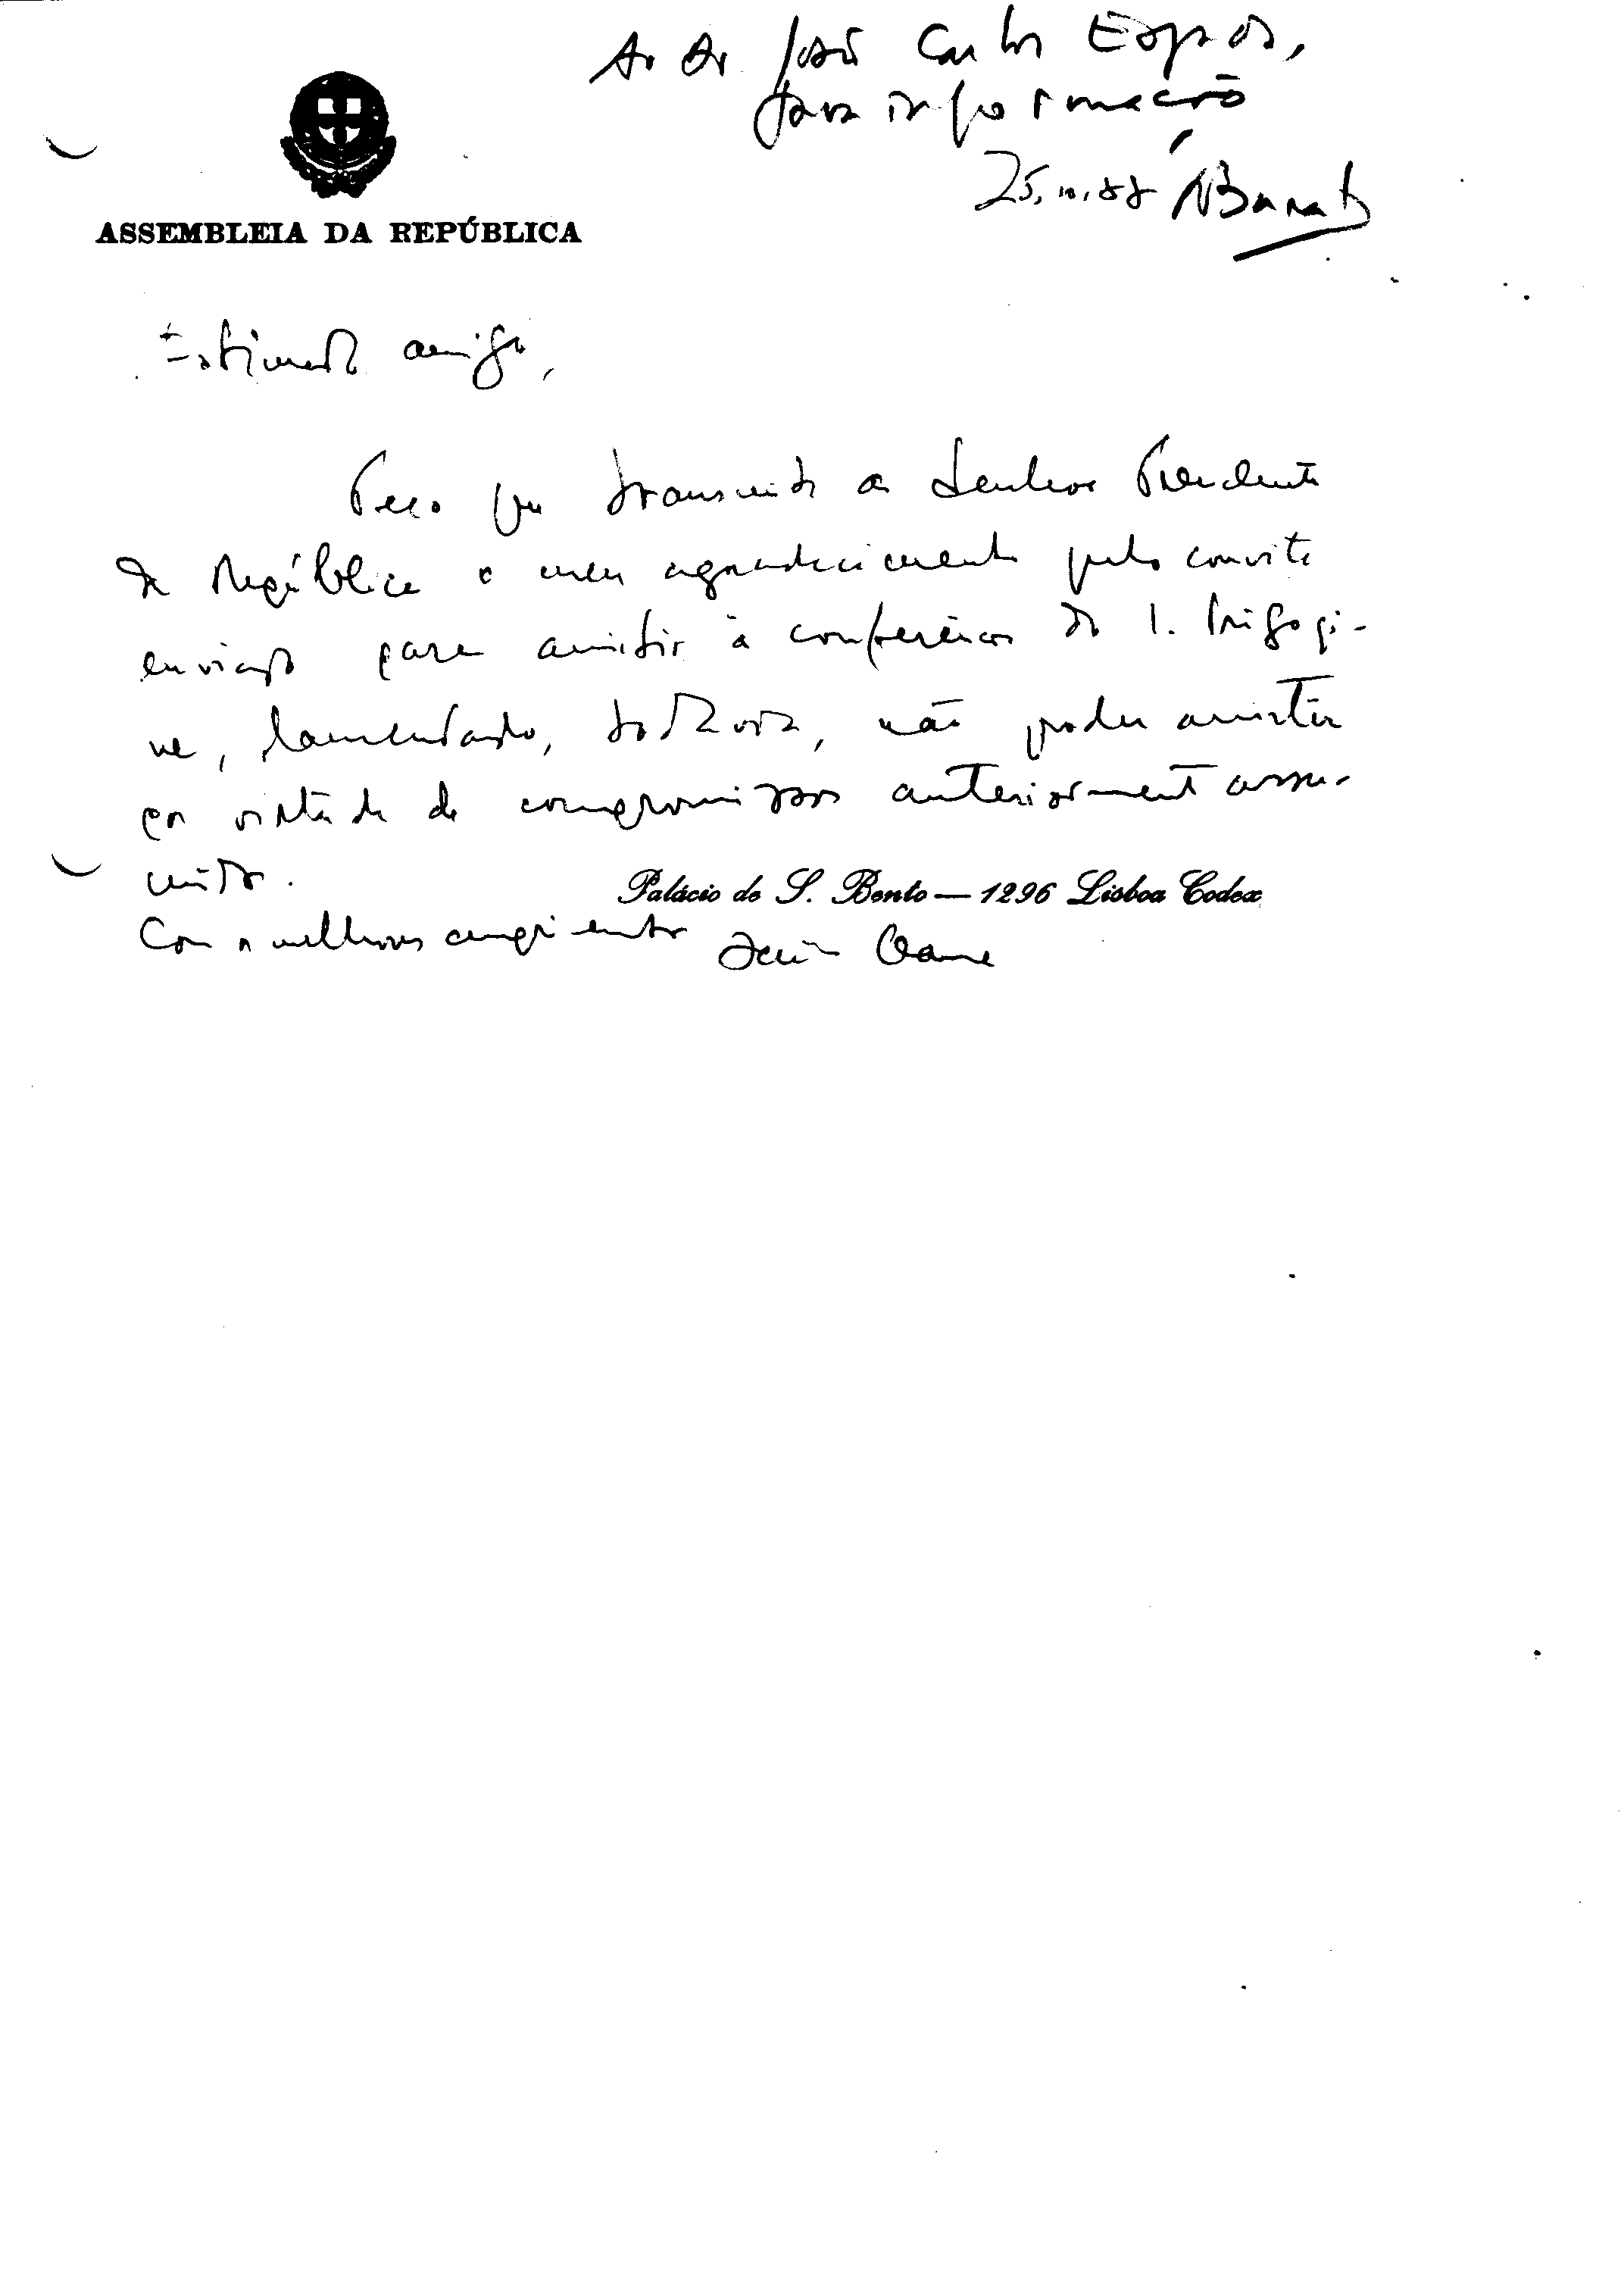 Ao Dr José Carlos Espada,
para informação
25.10.88 ABarreto
ASSEMBLEIA DA REPÚBLICA
Estimado amigo,
Peço que transmita ao Senhor Presidente
da República o meu agradecimento pelo convite
enviado para assistir à conferência do I. Prigogi-
ne, lamentando, todavia, não poder assistir
por virtude de compromissos anteriormente assu-
midos.
Palácio de S. Bento — 1296 Lisboa Codex
Com os melhores cumprimentos Jaime Gama